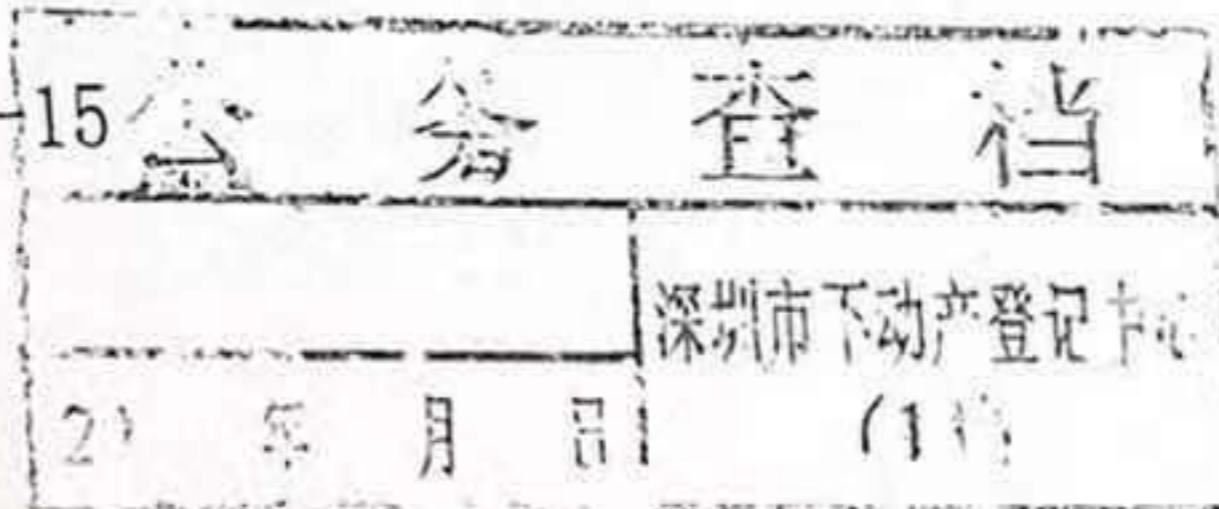 15 查档
深圳市不动产登记中心
2 年 月 日
(1